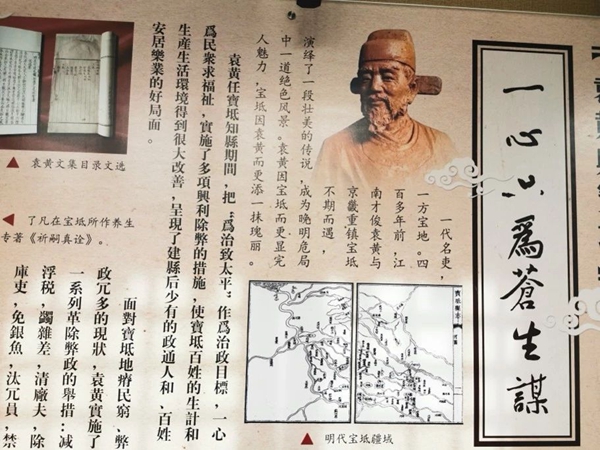 一心只爲蒼生謀
一代名吏，
一方宝地。四
百多年前，江
南才俊袁黄与
京畿重镇宝坻
不期而遇，
演绎了一段壮美的传说，成为晚明危局
中一道绝色风景。袁黄因宝坻而更显完
人魅力，宝坻因袁黄而更添一抹瑰丽。
▲ 明代宝坻疆域
袁黄任寶坻知縣期間，把“爲治致太平”作爲治政目標，一心
爲民衆求福祉，實施了多項興利除弊的措施，使寶坻百姓的生計和
生産生活環境得到很大改善，呈現了建縣后少有的政通人和，百姓
安居樂業的好局面。
▲ 袁黄文集目录文选
◀ 了凡在宝坻所作养生
专著《祈嗣真诠》。
面對寶坻地瘠民窮、弊
政冗多的現狀，袁黄實施了
一系列革除弊政的舉措：减
浮税，蠲雜差，清廠夫，除
庫吏，免銀魚，汰冗員，禁